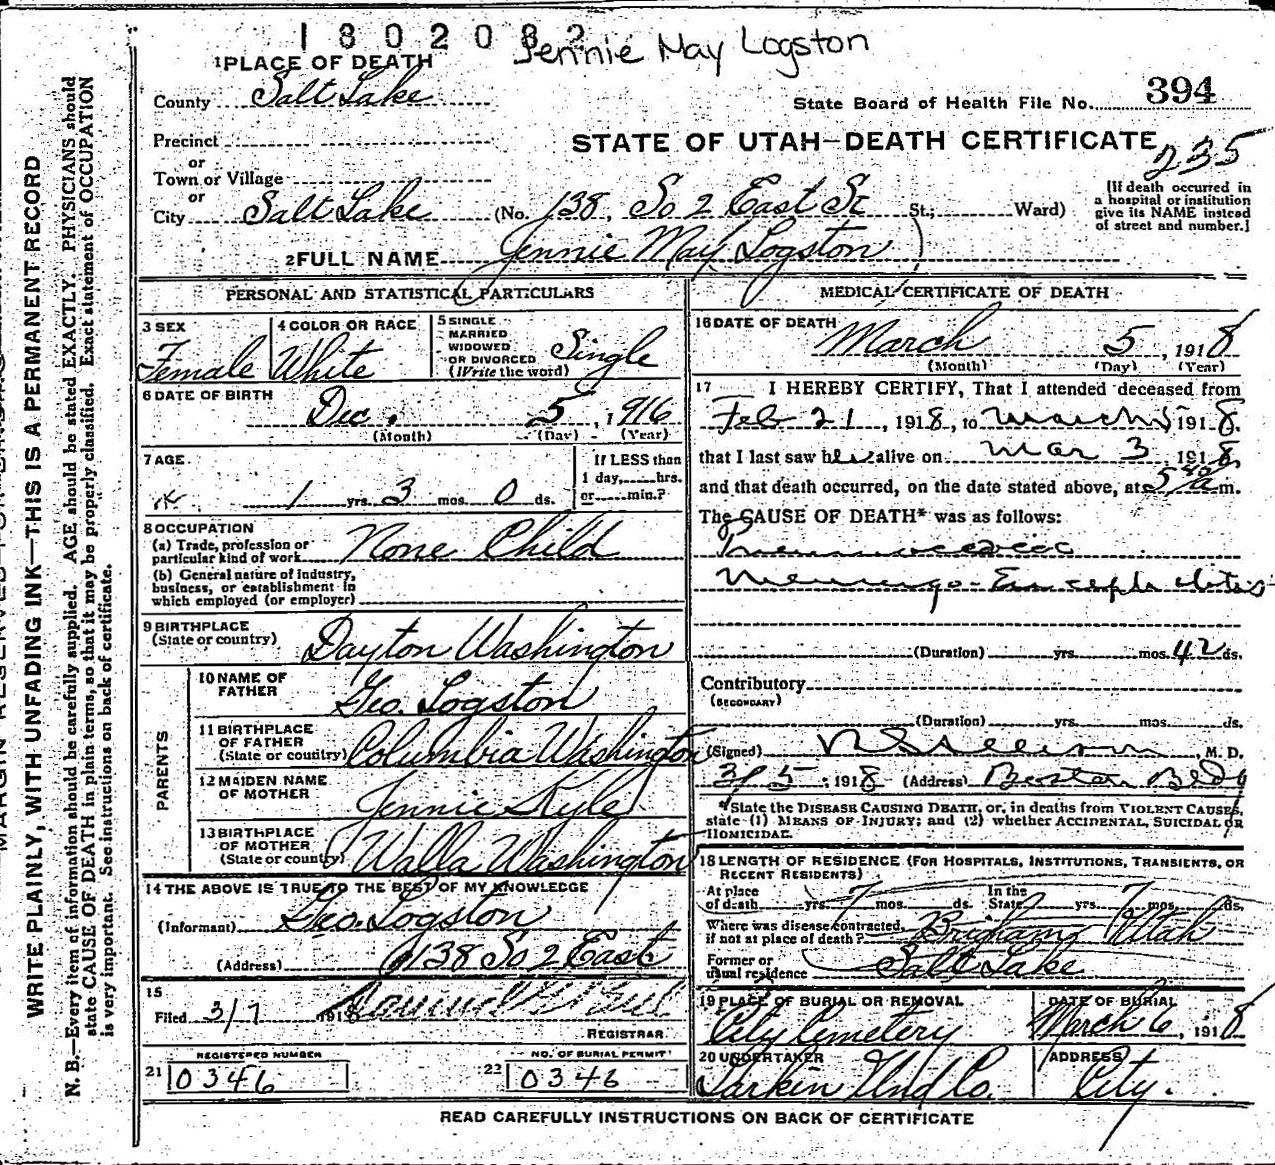 1302082
Jennie May Logston
1 PLACE OF DEATH
County Salt Lake
State Board of Health File No. 394
Precinct
STATE OF UTAH—DEATH CERTIFICATE
235
or
Town or Village
or
City Salt Lake (No. 138, So 2 East St St.; Ward)
[If death occurred in
a hospital or institution
give its NAME instead
of street and number.]
2 FULL NAME Jennie May Logston
PERSONAL AND STATISTICAL PARTICULARS
3 SEX
Female
4 COLOR OR RACE
White
5 SINGLE
MARRIED
WIDOWED
OR DIVORCED
(Write the word)
Single
6 DATE OF BIRTH
Dec. 5, 1916
(Month) (Day) (Year)
7 AGE
1 yrs. 3 mos. 0 ds.
If LESS than
1 day, hrs.
or min.?
8 OCCUPATION
(a) Trade, profession or
particular kind of work None Child
(b) General nature of industry,
business, or establishment in
which employed (or employer)
9 BIRTHPLACE
(State or country) Dayton Washington
PARENTS
10 NAME OF
FATHER Geo. Logston
11 BIRTHPLACE
OF FATHER
(State or country) Columbia Washington
12 MAIDEN NAME
OF MOTHER Jennie Kyle
13 BIRTHPLACE
OF MOTHER
(State or country) Walla Washington
14 THE ABOVE IS TRUE TO THE BEST OF MY KNOWLEDGE
(Informant) Geo. Logston
(Address) 138 So 2 East
15
Filed 3/7 1918
REGISTRAR
REGISTERED NUMBER
21 0346
NO. OF BURIAL PERMIT
22 0346
MEDICAL CERTIFICATE OF DEATH
16 DATE OF DEATH
March 5, 1918
(Month) (Day) (Year)
17 I HEREBY CERTIFY, That I attended deceased from
Feb 21, 1918, to March 5 1918.
that I last saw her alive on Mar 3 1918,
and that death occurred, on the date stated above, at 5 40 a m.
The CAUSE OF DEATH* was as follows:
Pneumococcic
Meningo-Encephalitis
(Duration) yrs. mos. 42 ds.
Contributory
(SECONDARY)
(Duration) yrs. mos. ds.
(Signed) , M. D.
3/5, 1918 (Address) Boston Bldg
*State the DISEASE CAUSING DEATH, or, in deaths from VIOLENT CAUSES,
state (1) MEANS OF INJURY; and (2) whether ACCIDENTAL, SUICIDAL OR
HOMICIDAL.
18 LENGTH OF RESIDENCE (FOR HOSPITALS, INSTITUTIONS, TRANSIENTS, OR
RECENT RESIDENTS)
At place
of death yrs. 7 mos. ds.
In the
State yrs. 7 mos. ds.
Where was disease contracted,
if not at place of death? Brigham Utah
Former or
usual residence Salt Lake
19 PLACE OF BURIAL OR REMOVAL
City Cemetery
DATE OF BURIAL
March 6, 1918
20 UNDERTAKER
Larkin Und Co.
ADDRESS
City.
READ CAREFULLY INSTRUCTIONS ON BACK OF CERTIFICATE
WRITE PLAINLY, WITH UNFADING INK—THIS IS A PERMANENT RECORD
N. B.—Every item of information should be carefully supplied. AGE should be stated EXACTLY. PHYSICIANS should
state CAUSE OF DEATH in plain terms, so that it may be properly classified. Exact statement of OCCUPATION
is very important. See instructions on back of certificate.